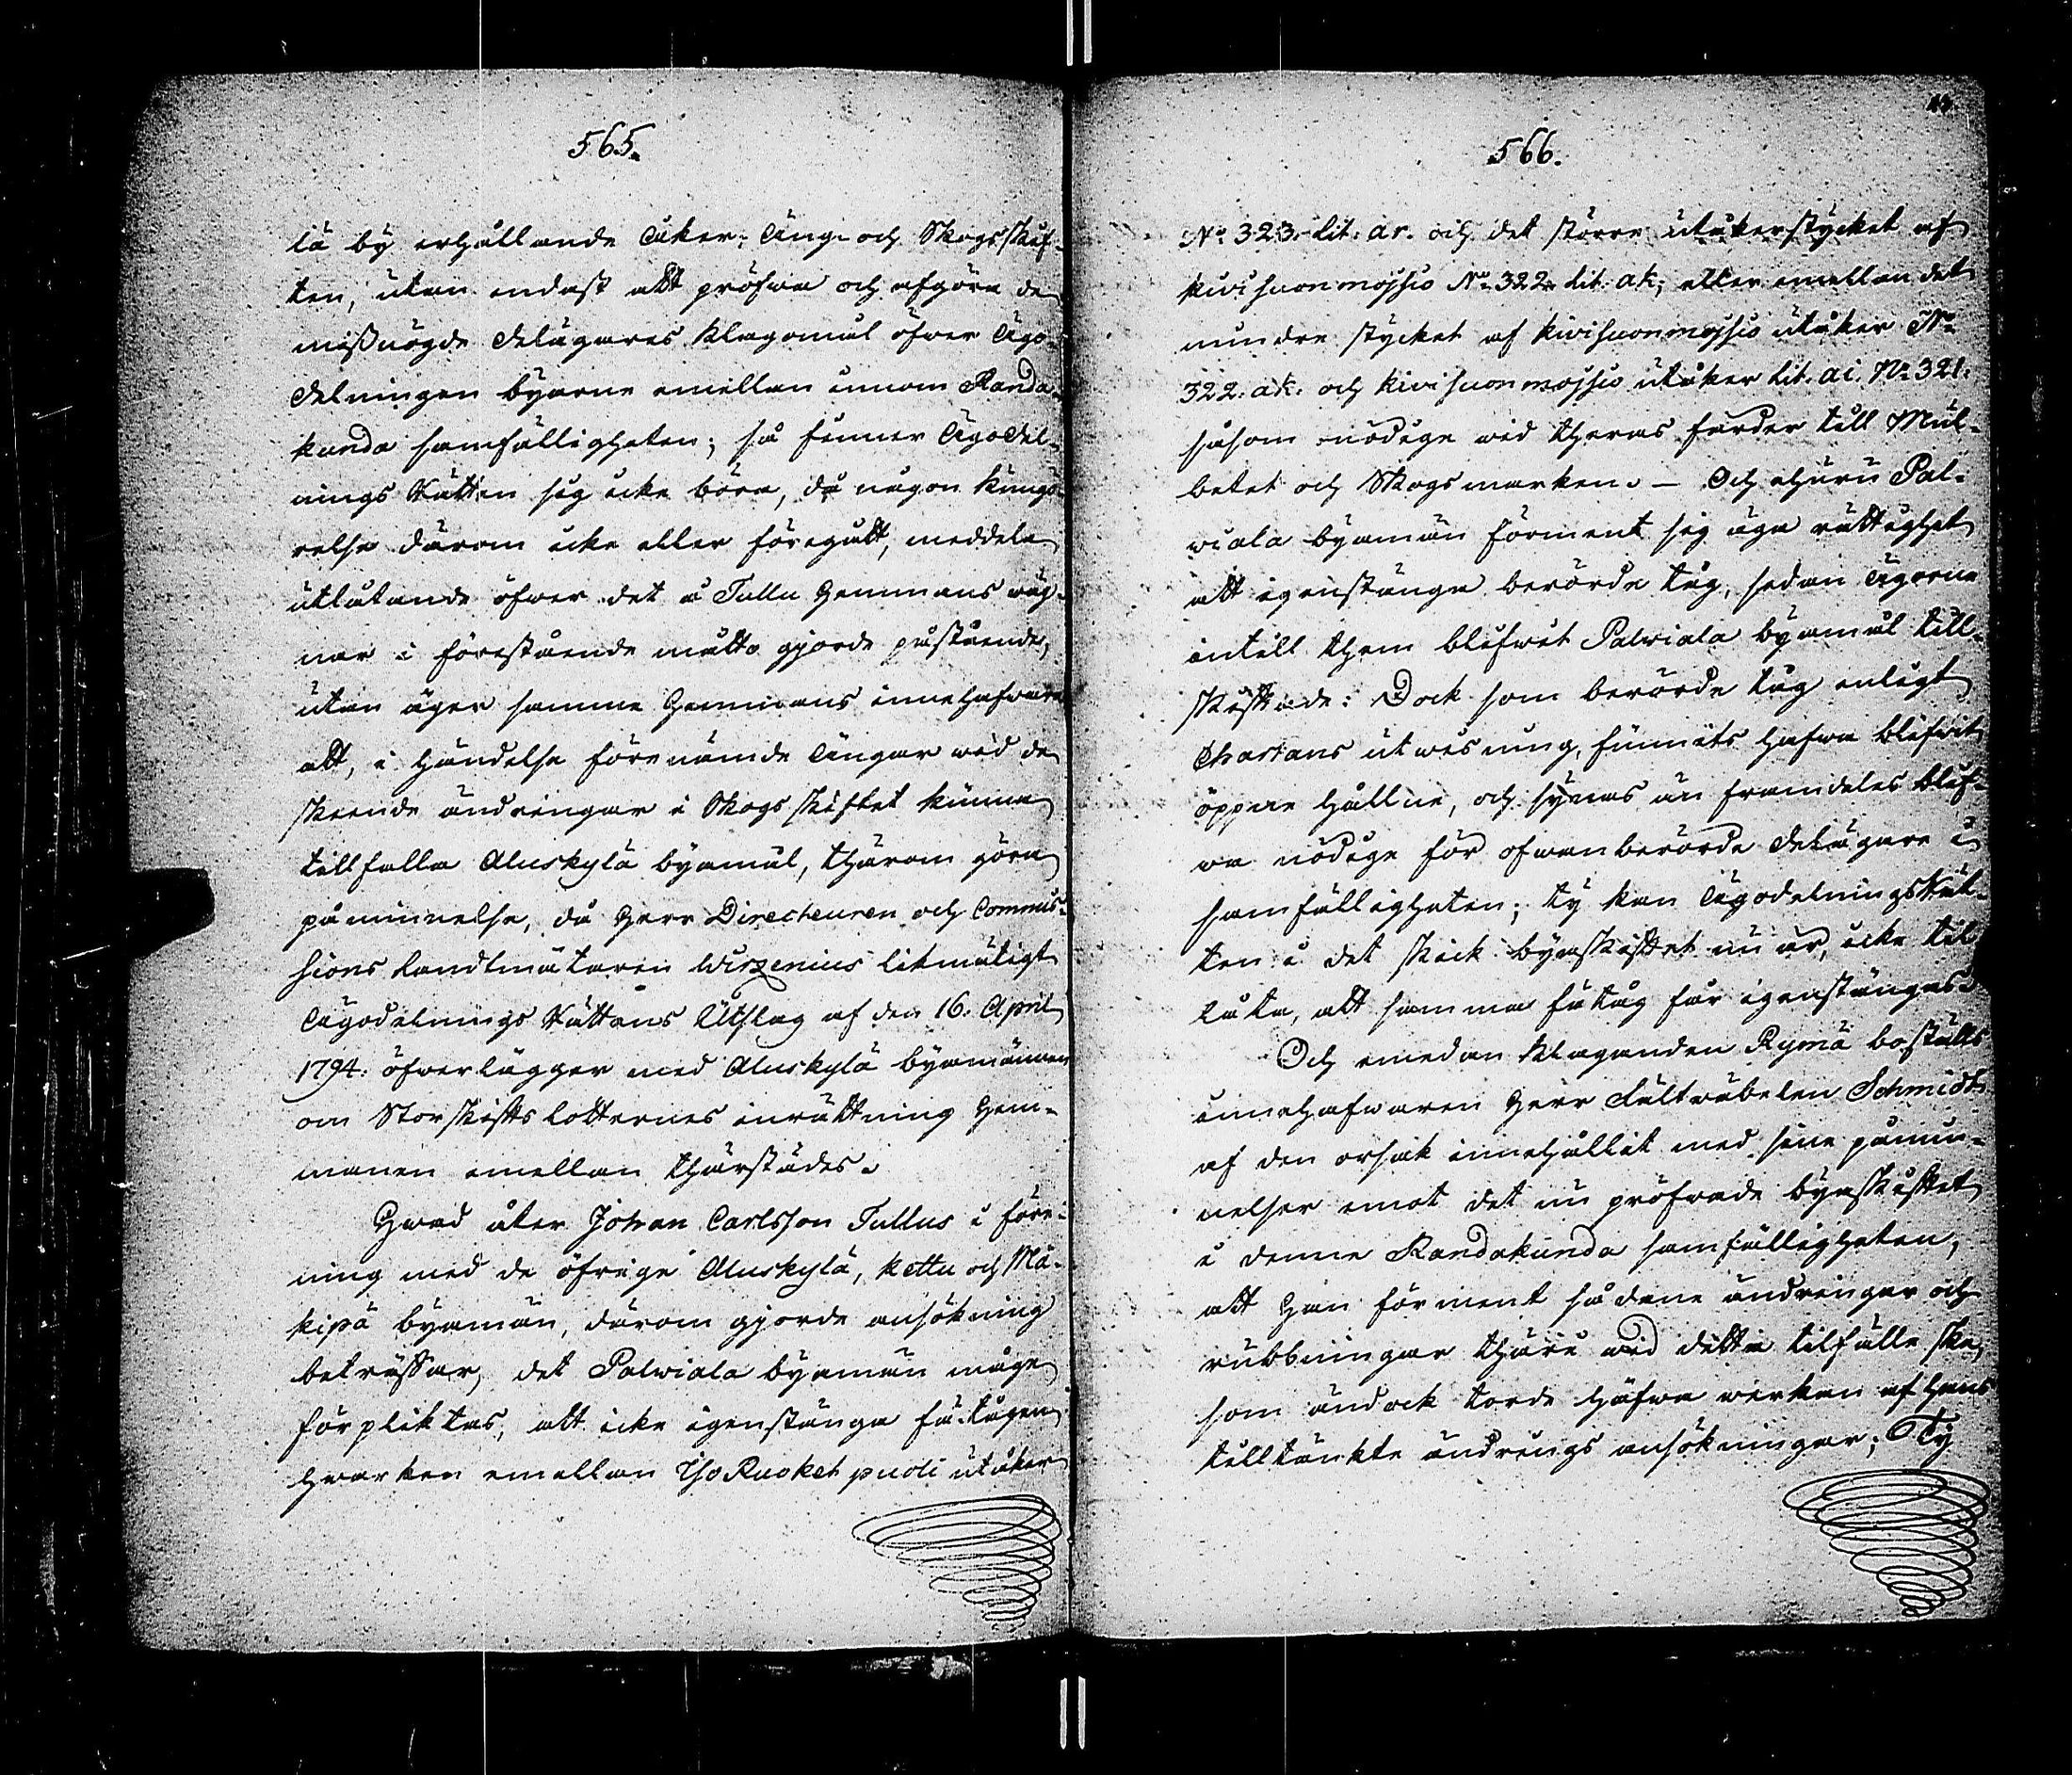 565.
lä by erhållande Åker- Äng- och Skogsskif-
ten, utan endast att pröfwa och afgöra de
missnögde Delägares Klagomål öfwer Ägo-
delningen byarne emellan innom Randa-
kunda samfälligheten; så finner Ägodel-
nings Rätten sig icke böra, då någon kungö-
relse därom icke eller föregått, meddela
utlåtande öfwer det å Tullu Hemmans wäg-
nar i förestående måtto gjorde påstående,
utan äger samma Hemmans innehafware
att, i händelse förenämde Ängar wid de
skeende ändringar i Skogsskiftet kunna
tillfalla Aluskylä byamål, thärom göra
påminnelse, då Herr Directeuren och Commis-
sions Landtmätaren Wirzenius likmätigt
Ägodelnings Rättens Utslag af den 16. April
1794. öfwerlägger med Aluskylä byamännen
om Storskiftslotternes inrättning Hem-
manen emellan thärstädes.
Hwad åter Johan Carlsson Tullus i före-
ning med de öfrige Aluskylä, Kettu och Mä-
kipä byamän, därom gjorde ansökning
beträffar, det Palwiala byamän måge
förpliktas, att icke igenstänga fä-tågen
hwarken emellan Iso Ruoket puoli utåker
566.
No. 323. Lit. ar. och det större utåkerstycket af
Kivisuonmojsio No. 322. Lit. ak; eller emellan det
mindre stycket af Kivisuonmojsio utåker No.
322. ak. och Kivisuonmojsio utåker Lit. ai. No. 321.
såsom nödige wid theras färder till Mul-
betet och Skogsmarken. - Och ehuru Pal-
wiala byamän förment sig äga rättighet
att igenstänga berörde tåg, sedan Ägorne
intill them blifwit Palwiala byamål till-
skiftade: Dock som berörde tåg enligt
Chartans utwisning, funnits hafwa blifwit
öppne hållne, och synas än framdeles blif-
wa nödige för ofwanberörde Delägare i
samfälligheten; ty kan Ägodelnings Rät-
ten i det skick byaskiftet nu är, icke til-
låta, att samma fätåg får igenstängas.
Och emedan Klaganden Rymä boställs
innehafwaren Herr Fältwäbelen Schmidt
af den orsak innehållit med sine påmin-
nelser emot det nu pröfwade byaskiftet
i denne Randakunda samfälligheten,
att han förment sådane ändringar och
rubbningar thäri wid detta tilfälle ske,
som ändock torde häfwa werkan af hans
tilltänkte ändrings ansökningar; Ty